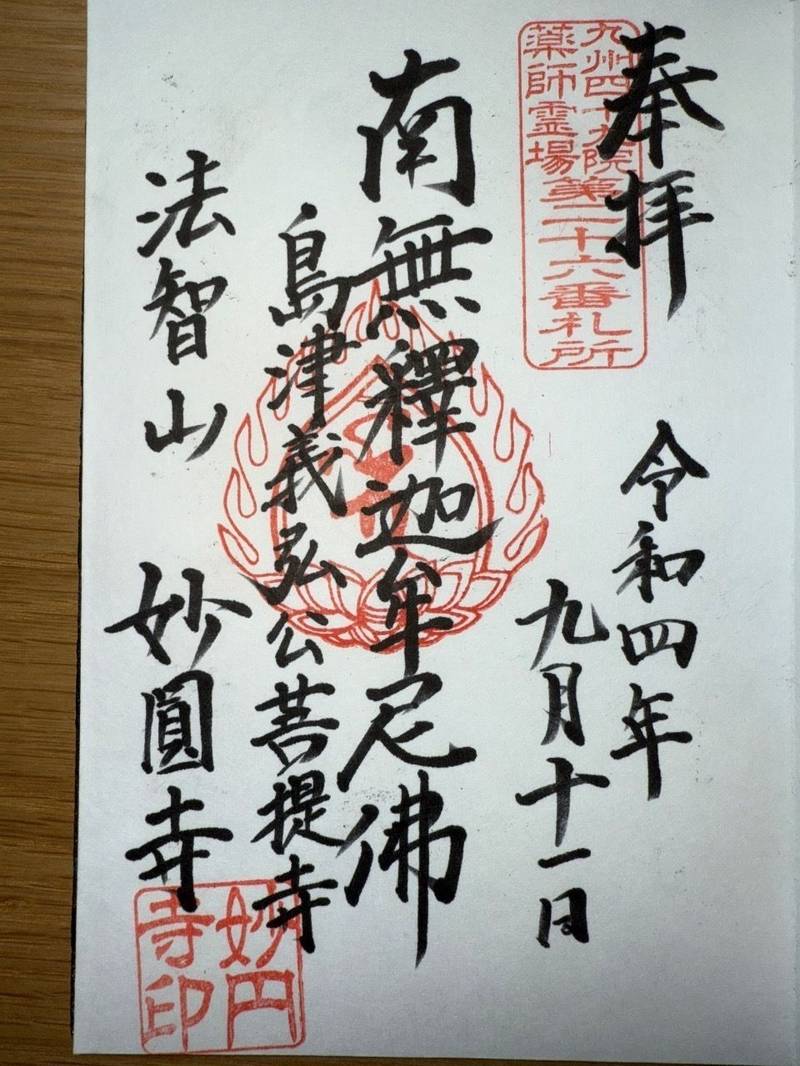 奉拝
九州四十九院
薬師霊場
第二十六番札所
令和四年
九月十一日
南無釋迦牟尼佛
島津義弘公菩提寺
法智山
妙圓寺
妙円
寺印